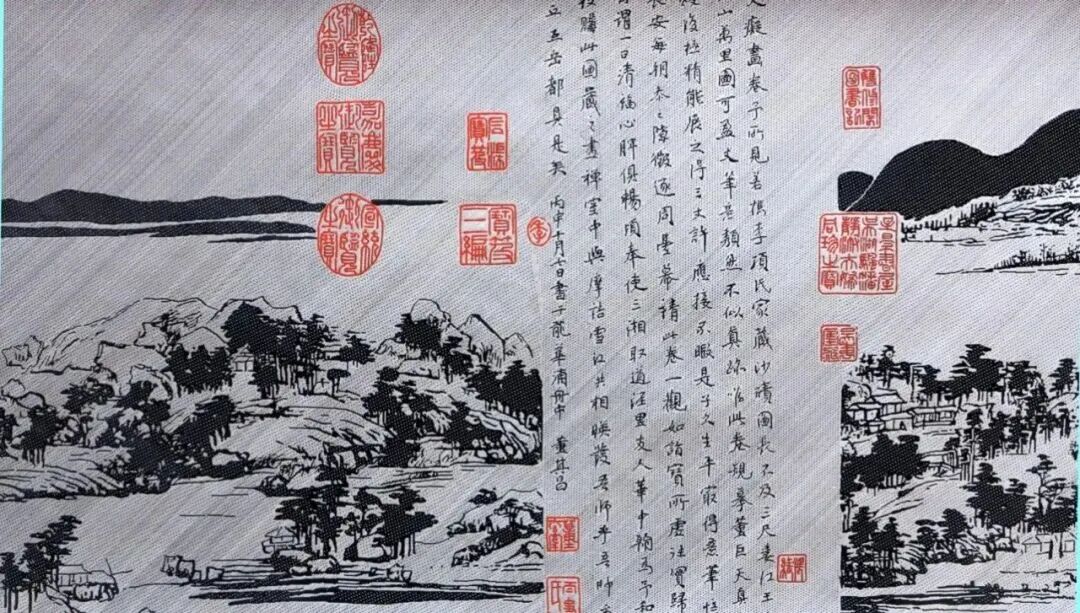 癡畫卷予所見若檇李項氏家藏沙磧圖長不及三尺婁江王
山萬里圖可盈丈筆意頹然不似真跡唯此卷規摹董巨天真
復極精能展之得三丈許應接不暇是子久生平最得意筆憶
長安每朝參之隙徵逐周臺幕請此卷一觀如詣寶所虛往實歸
謂一日清福心脾俱暢頃奉使三湘取道涇里友人華中翰為予和
購此圖藏之畫禪室中與摩詰雪江共相映發吾師乎吾師
丘五岳都具是矣 丙申十月七日書于龍華浦舟中 董其昌
乾隆御覽之寶
嘉慶御覽之寶
宣統御覽之寶
石渠寶笈
寶笈二編